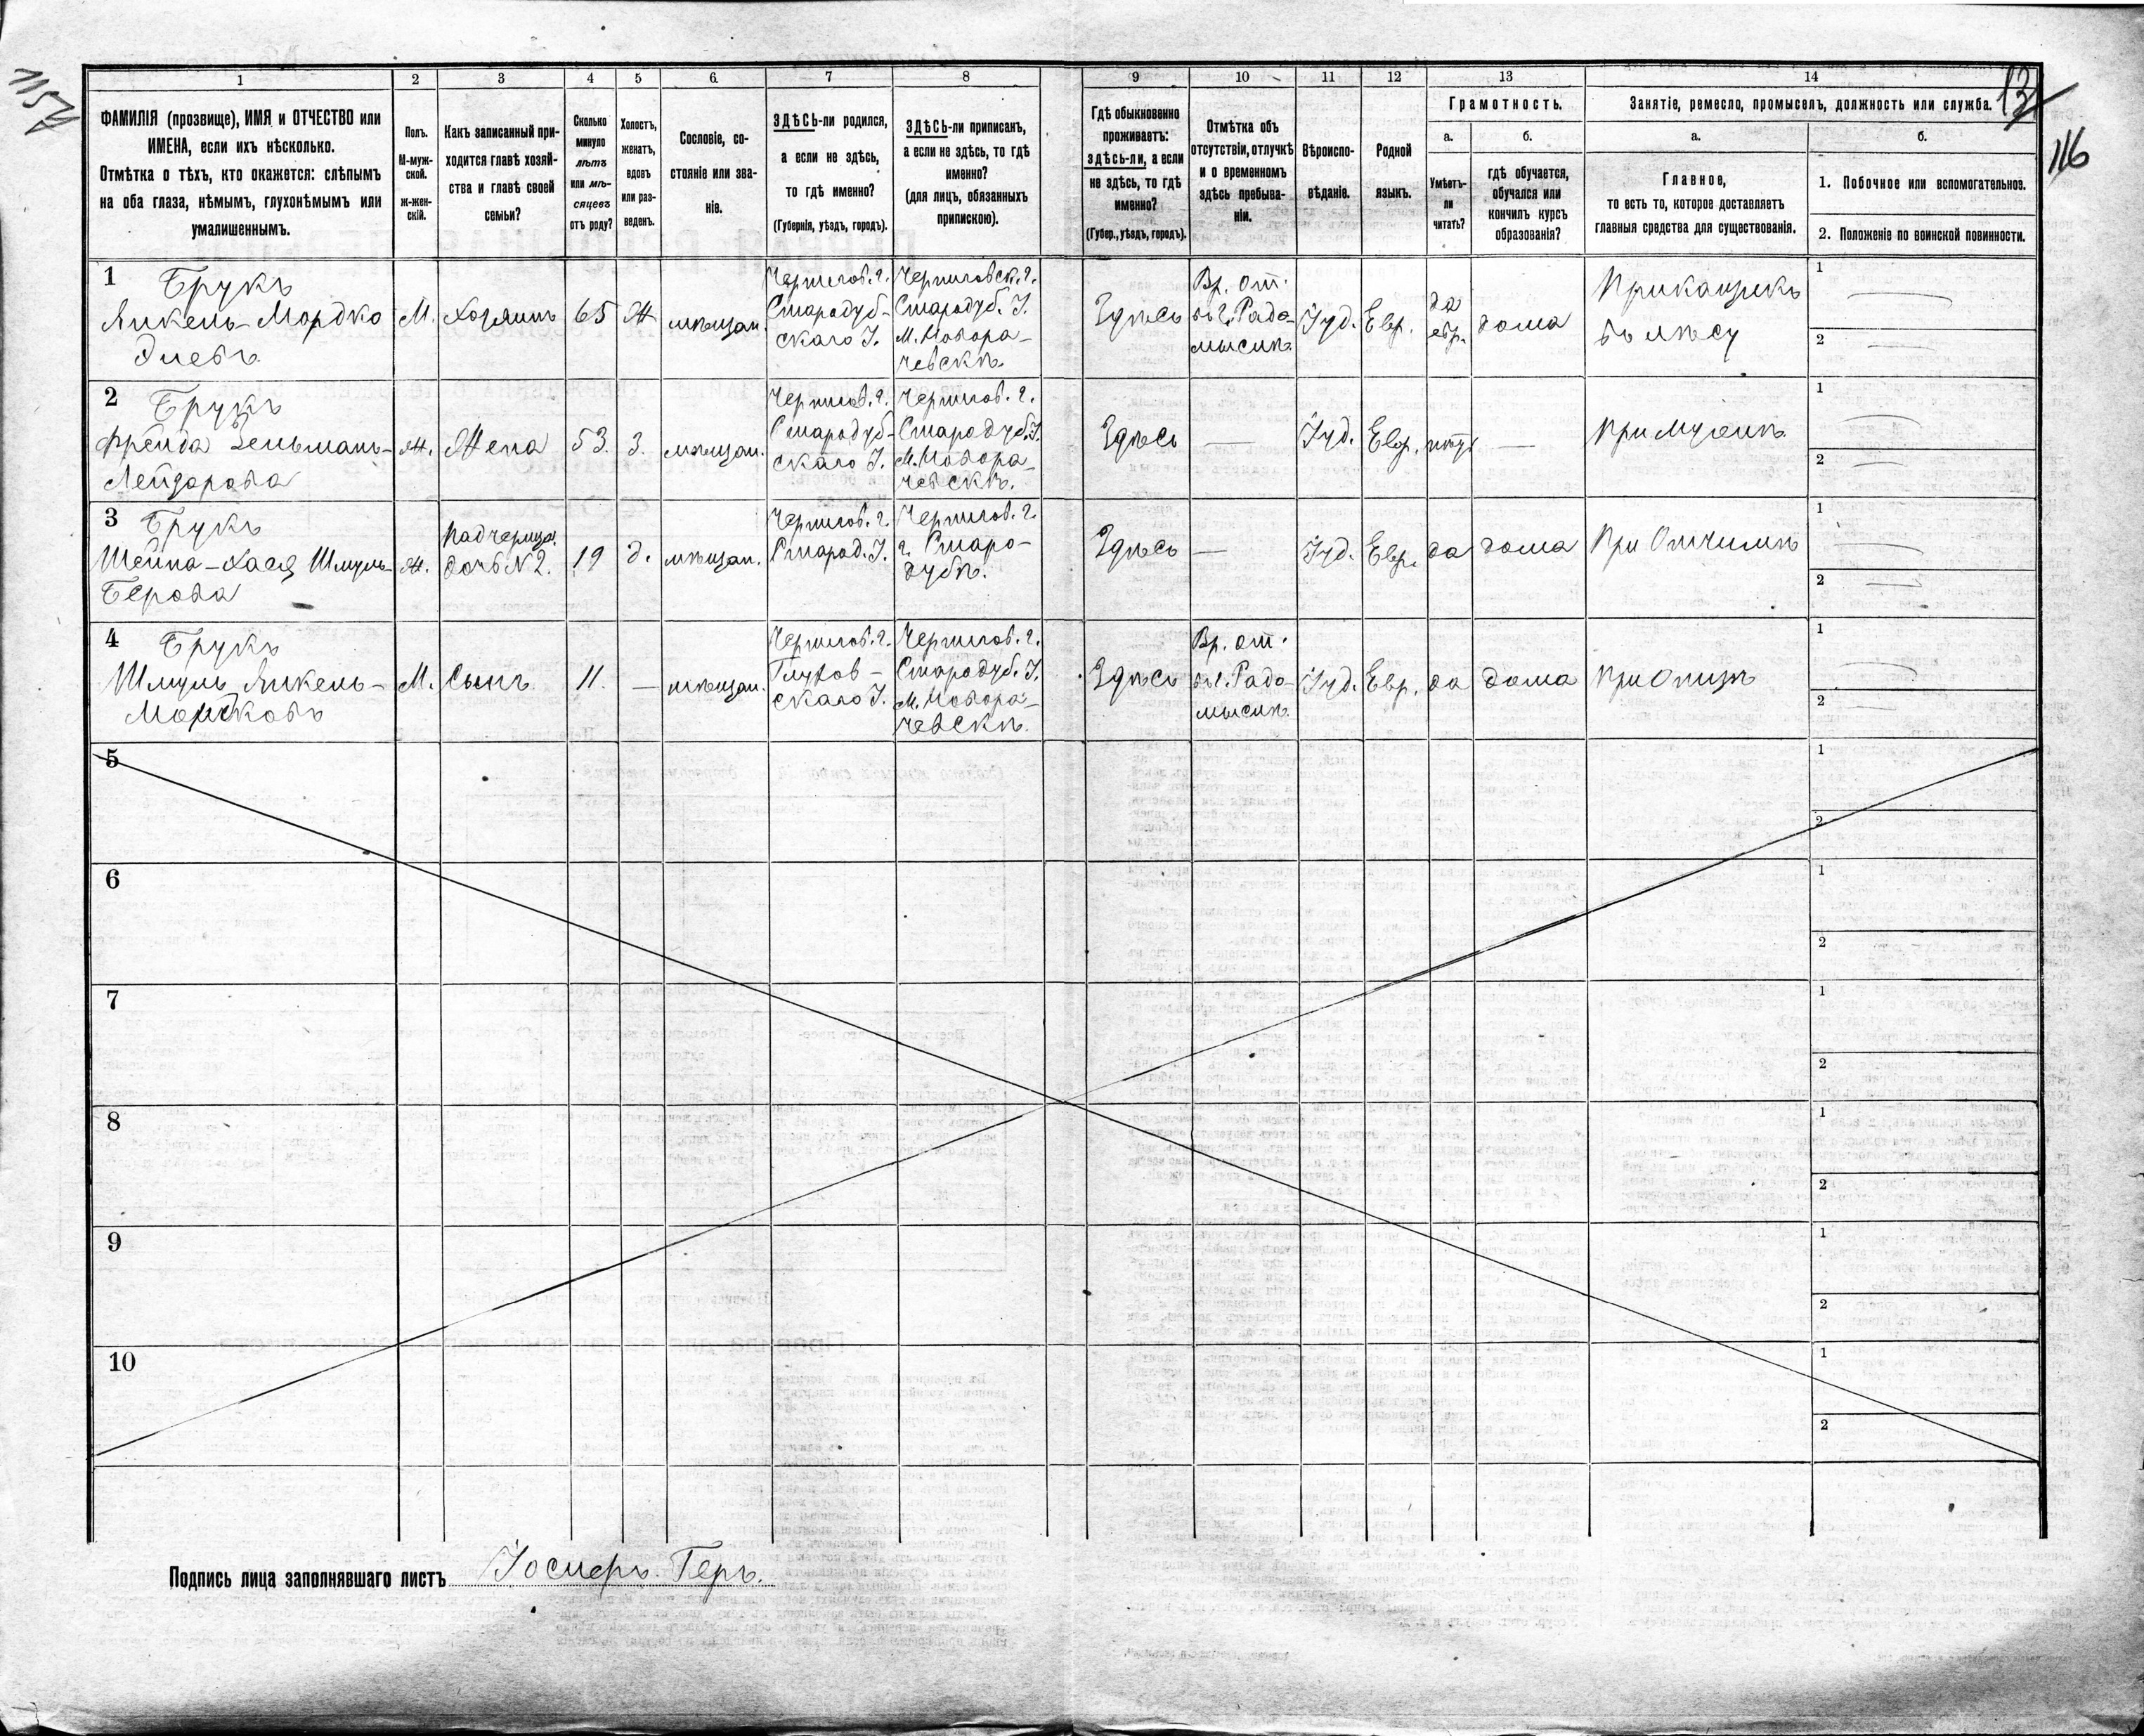 115
13
116
1 2 3 4 5 6 7 8 9 10 11 12 13 14
ФАМИЛІЯ (прозвище), ИМЯ и ОТЧЕСТВО или
ИМЕНА, если ихъ нѣсколько.
Отмѣтка о тѣхъ, кто окажется: слѣпымъ
на оба глаза, нѣмымъ, глухонѣмымъ или
умалишеннымъ.
Полъ.
М-муж-
ской.
Ж-жен-
скій.
Какъ записанный при-
ходится главѣ хозяй-
ства и главѣ своей
семьи?
Сколько
минуло
лѣтъ
или мѣ-
сяцевъ
отъ роду?
Холостъ,
женатъ,
вдовъ
или раз-
веденъ.
Сословіе, со-
стояніе или зва-
ніе.
ЗДѢСЬ-ли родился,
а если не здѣсь,
то гдѣ именно?
(Губернія, уѣздъ, городъ).
ЗДѢСЬ-ли приписанъ,
а если не здѣсь, то гдѣ
именно?
(для лицъ, обязанныхъ
припискою).
Гдѣ обыкновенно
проживаетъ:
здѣсь-ли, а если
не здѣсь, то гдѣ
именно?
(Губер., уѣздъ, городъ).
Отмѣтка объ
отсутствіи, отлучкѣ
и о временномъ
здѣсь пребыва-
ніи.
Вѣроиспо-
вѣданіе.
Родной
языкъ.
Грамотность.
а.
Умѣетъ-
ли
читать?
б.
гдѣ обучается,
обучался или
кончилъ курсъ
образованія?
Занятіе, ремесло, промыселъ, должность или служба.
а.
Главное,
то есть то, которое доставляетъ
главныя средства для существованія.
б.
1. Побочное или вспомогательное.
2. Положеніе по воинской повинности.
1
Брукъ
Янкель-Мордко
Элевъ
М.
Хозяинъ
65
Ж
мѣщан.
Чернигов. г.
Стародуб-
скаго У.
Черниговск. г.
Стародуб. У.
М. Новора-
чевскѣ.
Здѣсь
Вр. от.
въ г. Радо-
мыслѣ.
Іуд.
Евр.
да
евр.
дома
Прикащикъ
въ лѣсу
1
2
2
Брукъ
Фрейда Зельманъ-
Лейзарова
Ж.
Жена
53.
З.
мѣщан.
Чернигов. г.
Стародуб-
скаго У.
Чернигов. г.
Стародуб. У.
М. Новора-
чевскѣ.
Здѣсь
—
Іуд.
Евр.
нѣтъ
—
При Мужѣ
1
2
3
Брукъ
Шейна-Хася Шмуль-
Берова
Ж.
Падчерица.
дочь N 2.
19
д.
мѣщан.
Чернигов. г.
Старод. У.
Чернигов. г.
г. Старо-
дубѣ.
Здѣсь
—
Іуд.
Евр.
да
дома
При Отчимѣ
1
2
4
Брукъ
Шмуль Янкель-
Мордковъ
М.
Сынъ
11.
—
мѣщан.
Чернигов. г.
Глухов-
скаго У.
Чернигов. г.
Стародуб. У.
М. Новора-
чевскѣ.
Здѣсь
Вр. от.
въ г. Радо-
мыслѣ.
Іуд.
Евр.
да
дома
При Отцѣ
1
2
5
1
2
6
1
2
7
1
2
8
1
2
9
1
2
10
1
2
Подпись лица заполнявшаго листъ Іосиеръ Геръ.